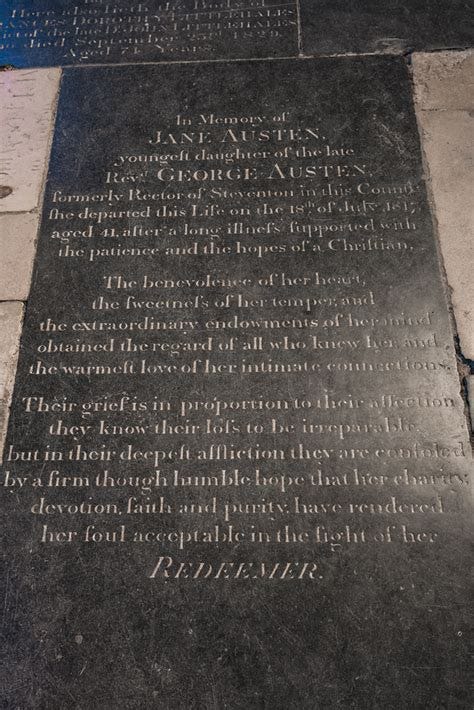 JANES DOROTHY LITTLEHALES
of the late D.r JOHN LITTLEHALES
died September 1829
aged 75 Years
In Memory of
JANE AUSTEN,
youngeſt daughter of the late
Rev.d GEORGE AUSTEN,
formerly Rector of Steventon in this County
ſhe departed this Life on the 18.th of July 1817,
aged 41, after a long illneſs ſupported with
the patience and the hopes of a Chriſtian.
The benevolence of her heart,
the ſweetneſs of her temper, and
the extraordinary endowments of her mind
obtained the regard of all who knew her and
the warmeſt love of her intimate connections.
Their grief is in proportion to their affection
they know their loſs to be irreparable,
but in their deepeſt affliction they are conſoled
by a firm though humble hope that her charity,
devotion, faith and purity, have rendered
her ſoul acceptable in the ſight of her
REDEEMER.